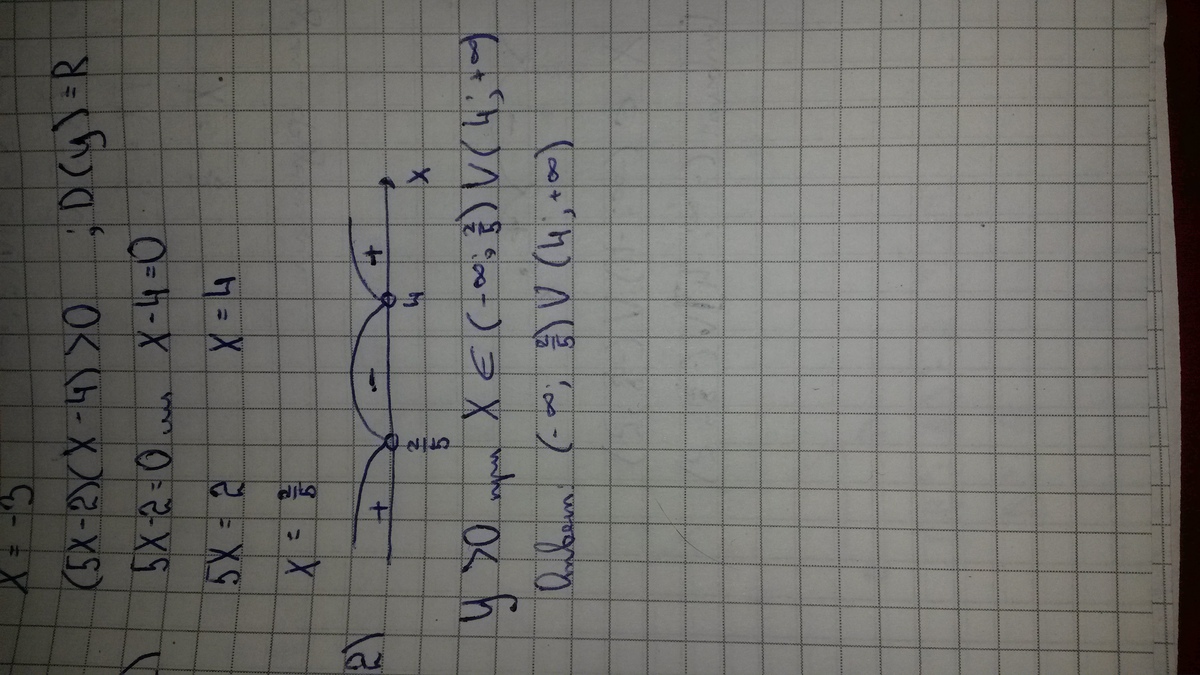 X = -3
(5X-2)(X-4)>0 ; D(y)=R
) 5X-2=0 или X-4=0
5X = 2 X = 4
X = 2/5
2) + - +
2/5 4 X
y >0 при X ∈ (-∞; 2/5) V (4; +∞)
Ответ: (-∞; 2/5) V (4; +∞)